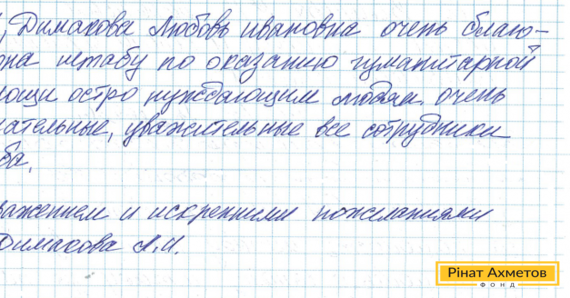 , Димакова Любовь ивановна очень благо-
она штабу по оказанию гуманитарной
ощи остро нуждающим людям. очень
ательные, уважительные все сотрудники
ба.
важением и искренними пожеланиями
Димакова Л.И.
Рінат Ахметов
ФОНД